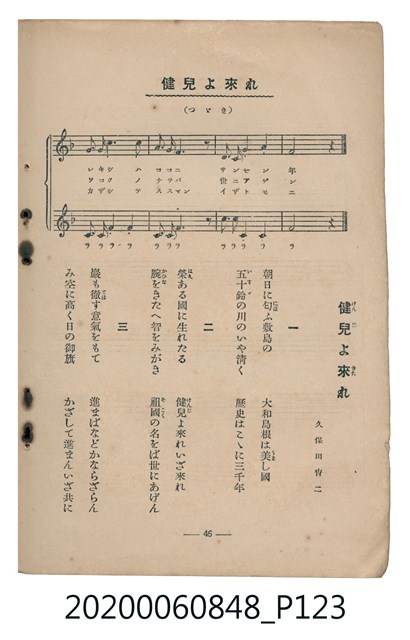 健兒よ來れ
（つゞき）
レキシ ハ ココニ サンゼン 年
ソコク ノ ナヲバ 世ニアゲ ン
カザシ テ ススマン イザトモ ニ
ララ ラララ ララララ ラララ ラ ラ
健兒よ來れ
久保田宵二
一
朝日に匂ふ敷島の 大和島根は美し國
五十鈴の川のいや清く 歷史はこゝに三千年
二
榮ある國に生れたる 健兒よ來れいざ來れ
腕をきたへ智をみがき 祖國の名をば世にあげん
三
巖も徹す意氣をもて 進まばなどかならざらん
み空に高く日の御旗 かざして進まんいざ共に
— 46 —
20200060848_P123